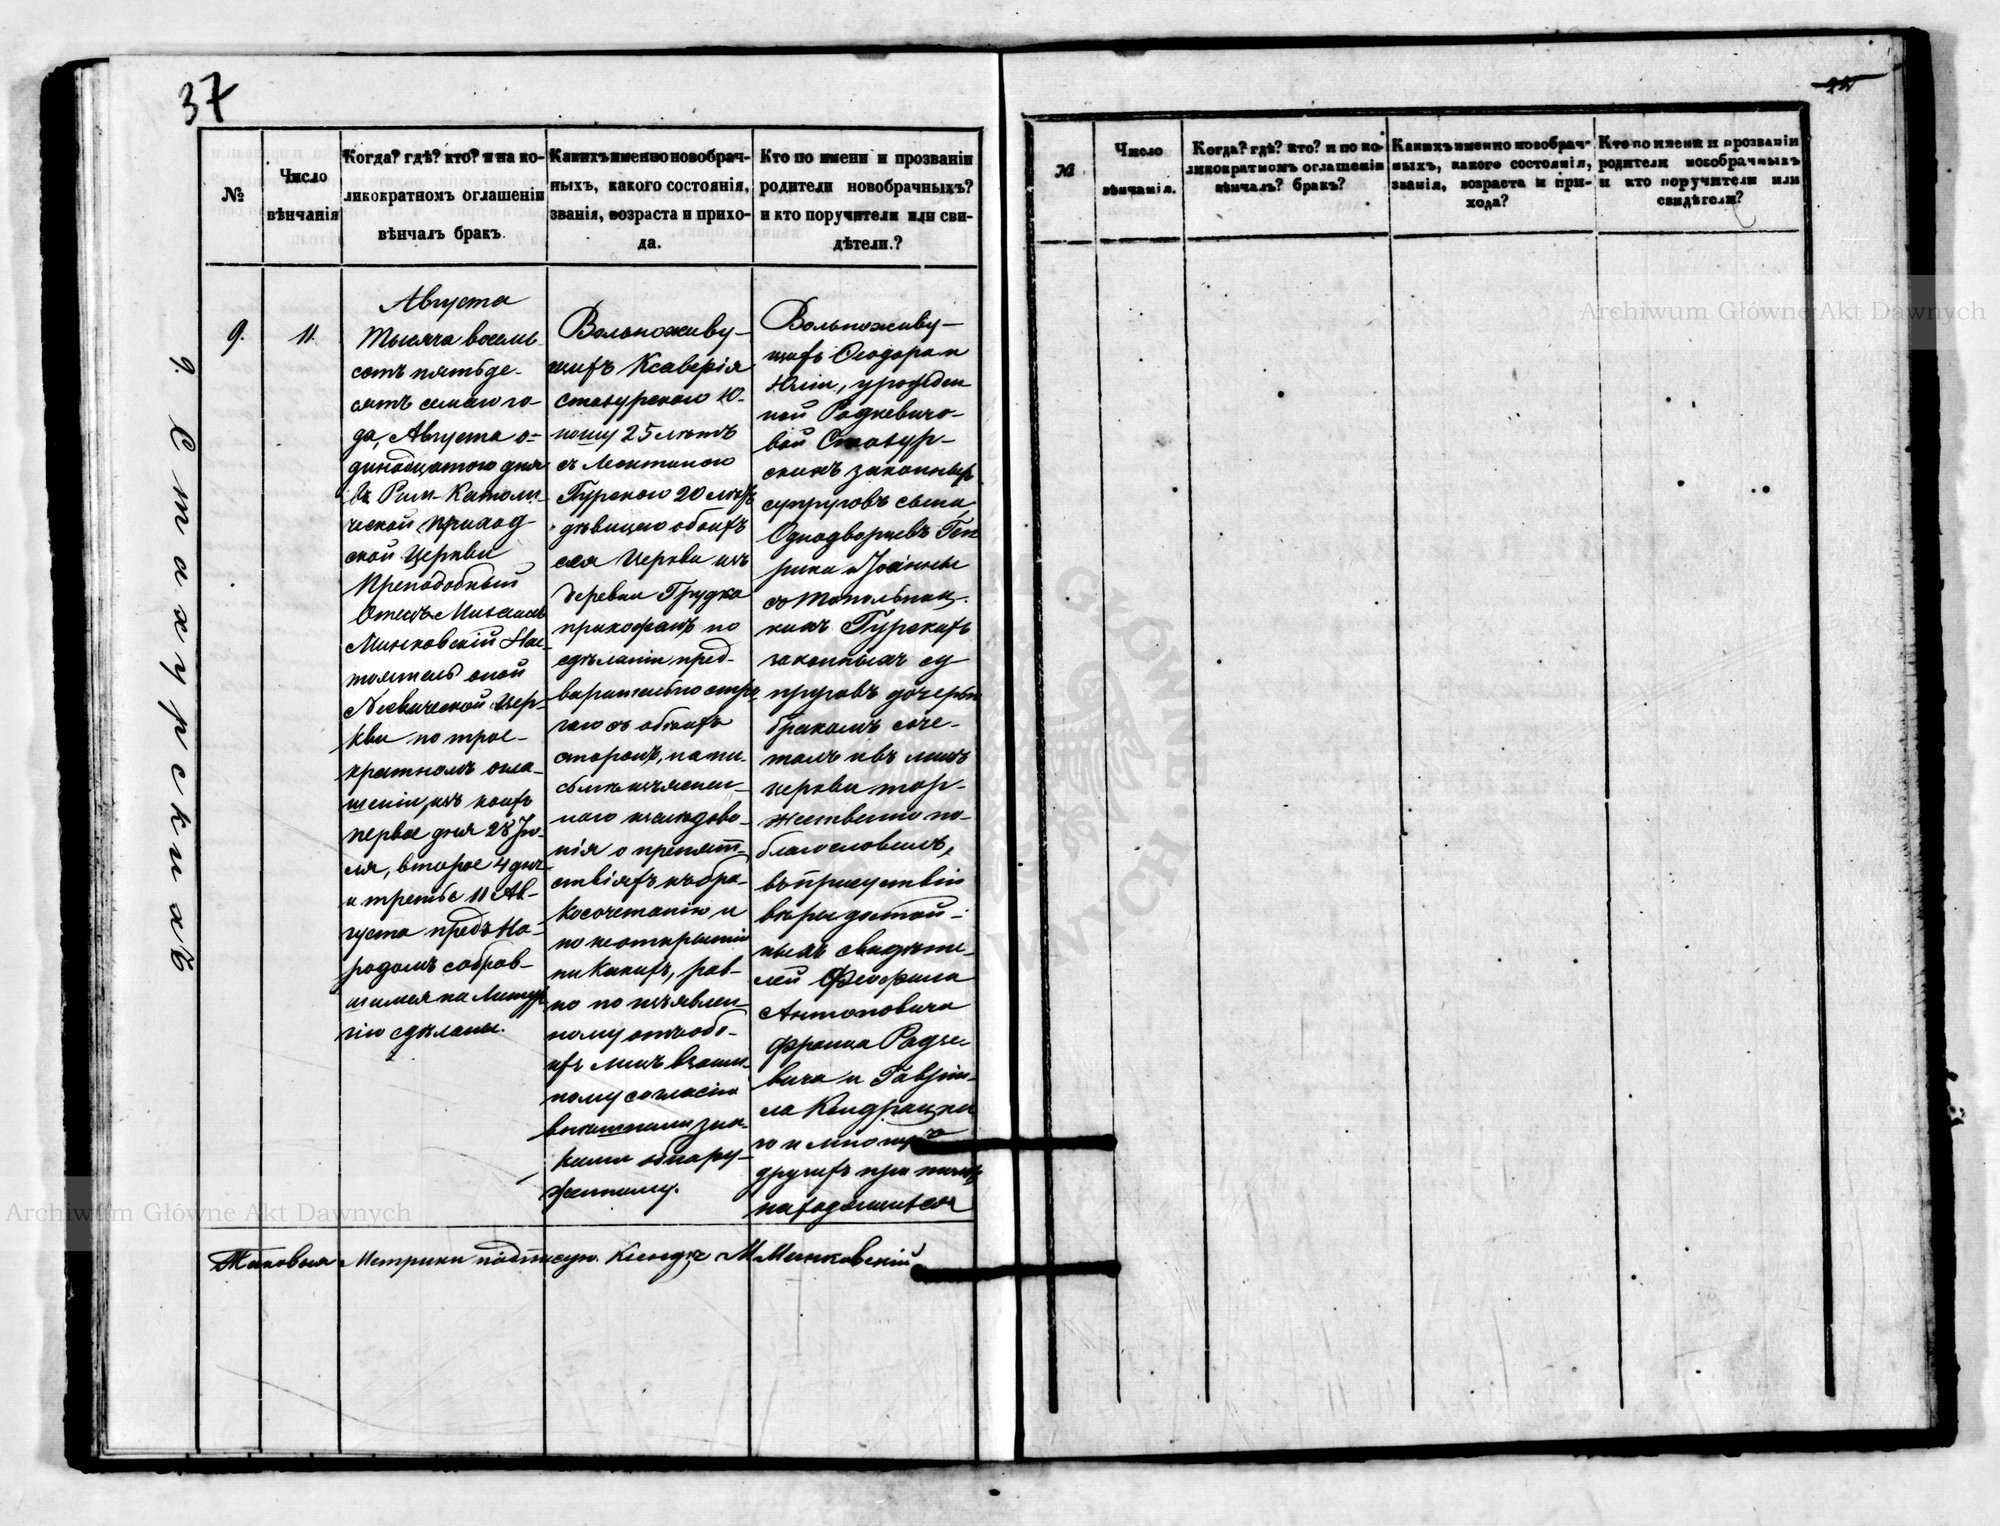 37
№
Число
вѣнчанія
Когда? гдѣ? кто? и на ко-
ликократномъ оглашеніи
вѣнчалъ бракъ.
Какихъ именно новобрач-
ныхъ, какого состоянія,
званія, возраста и прихо-
да.
Кто по имени и прозванію
родители новобрачныхъ?
и кто поручители или сви-
дѣтели.?
9. Стахурскихъ
9.
11.
Августа
Тысяча восемь
сотъ пятьде-
сятъ седмого го-
да, Августа о-
динадцатого дня
въ Рим-Католи-
ческой приход-
ской Церкви
Преподобный
Отецъ Михаилъ
Минковскій Нас-
тоятель оной
Цер-
кви по трое-
кратномъ огла-
шеніи, изъ коихъ
первое дня 28 Ію-
ля, второе 4 дня
и третье 11 Ав-
густа предъ На-
родомъ собрав-
шимся на Литур
гію сдѣланы.
Вольноживу-
щихъ Ксаверія
Стахурского Ю-
ношу 25 лѣтъ
съ
Гурскою 20 лѣтъ
дѣвицею обоихъ
сея Церкви изъ
деревни Грудка
прихожанъ по
сдѣланіи пред-
варительно стро
гаго съ обоихъ
сторонъ, на пи-
сьмѣ изъяснен-
ного изслѣдова-
нія о препят-
ствіяхъ къ бра-
косочетанію и
по неоткрытіи
ни какихъ, рав-
но по изъявлен-
ному отъ обо-
ихъ лицъ взаим-
ному согласію
внешними зна-
ками обнару-
женному.
Вольноживу-
щихъ Ѳеодора и
Юліи, урожден
ной Радкевичо-
вой Стахур-
скихъ законныхъ
супруговъ сына,
Однодворцевъ Ген
рика и Іоанны
съ Топольниц-
кихъ Гурскихъ
законныхъ су
пруговъ дочерью
бракомъ соче-
талъ и въ лицѣ
церкви тор-
жественно по-
благословилъ,
въ присутствіи
вѣры достой-
ныхъ свидѣте-
лей Феофила
Антоновича
Франца Радке
вича и Гавріи-
ла Кондрацка
го и многихъ
другихъ при томъ
находящихся
Таковыя Метрики подписую. Ксендзъ М Минковскій
№
Число
вѣнчанія.
Когда? гдѣ? кто? и по ко-
ликократномъ оглашеніи
вѣнчалъ? бракъ?
Какихъ именно новобрач-
ныхъ, какого состоянія,
званія, возраста и при-
хода?
Кто по имени и прозванію
родители новобрачныхъ
и кто поручители или
свидѣтели?
Archiwum Główne Akt Dawnych
Archiwum Główne Akt Dawnych